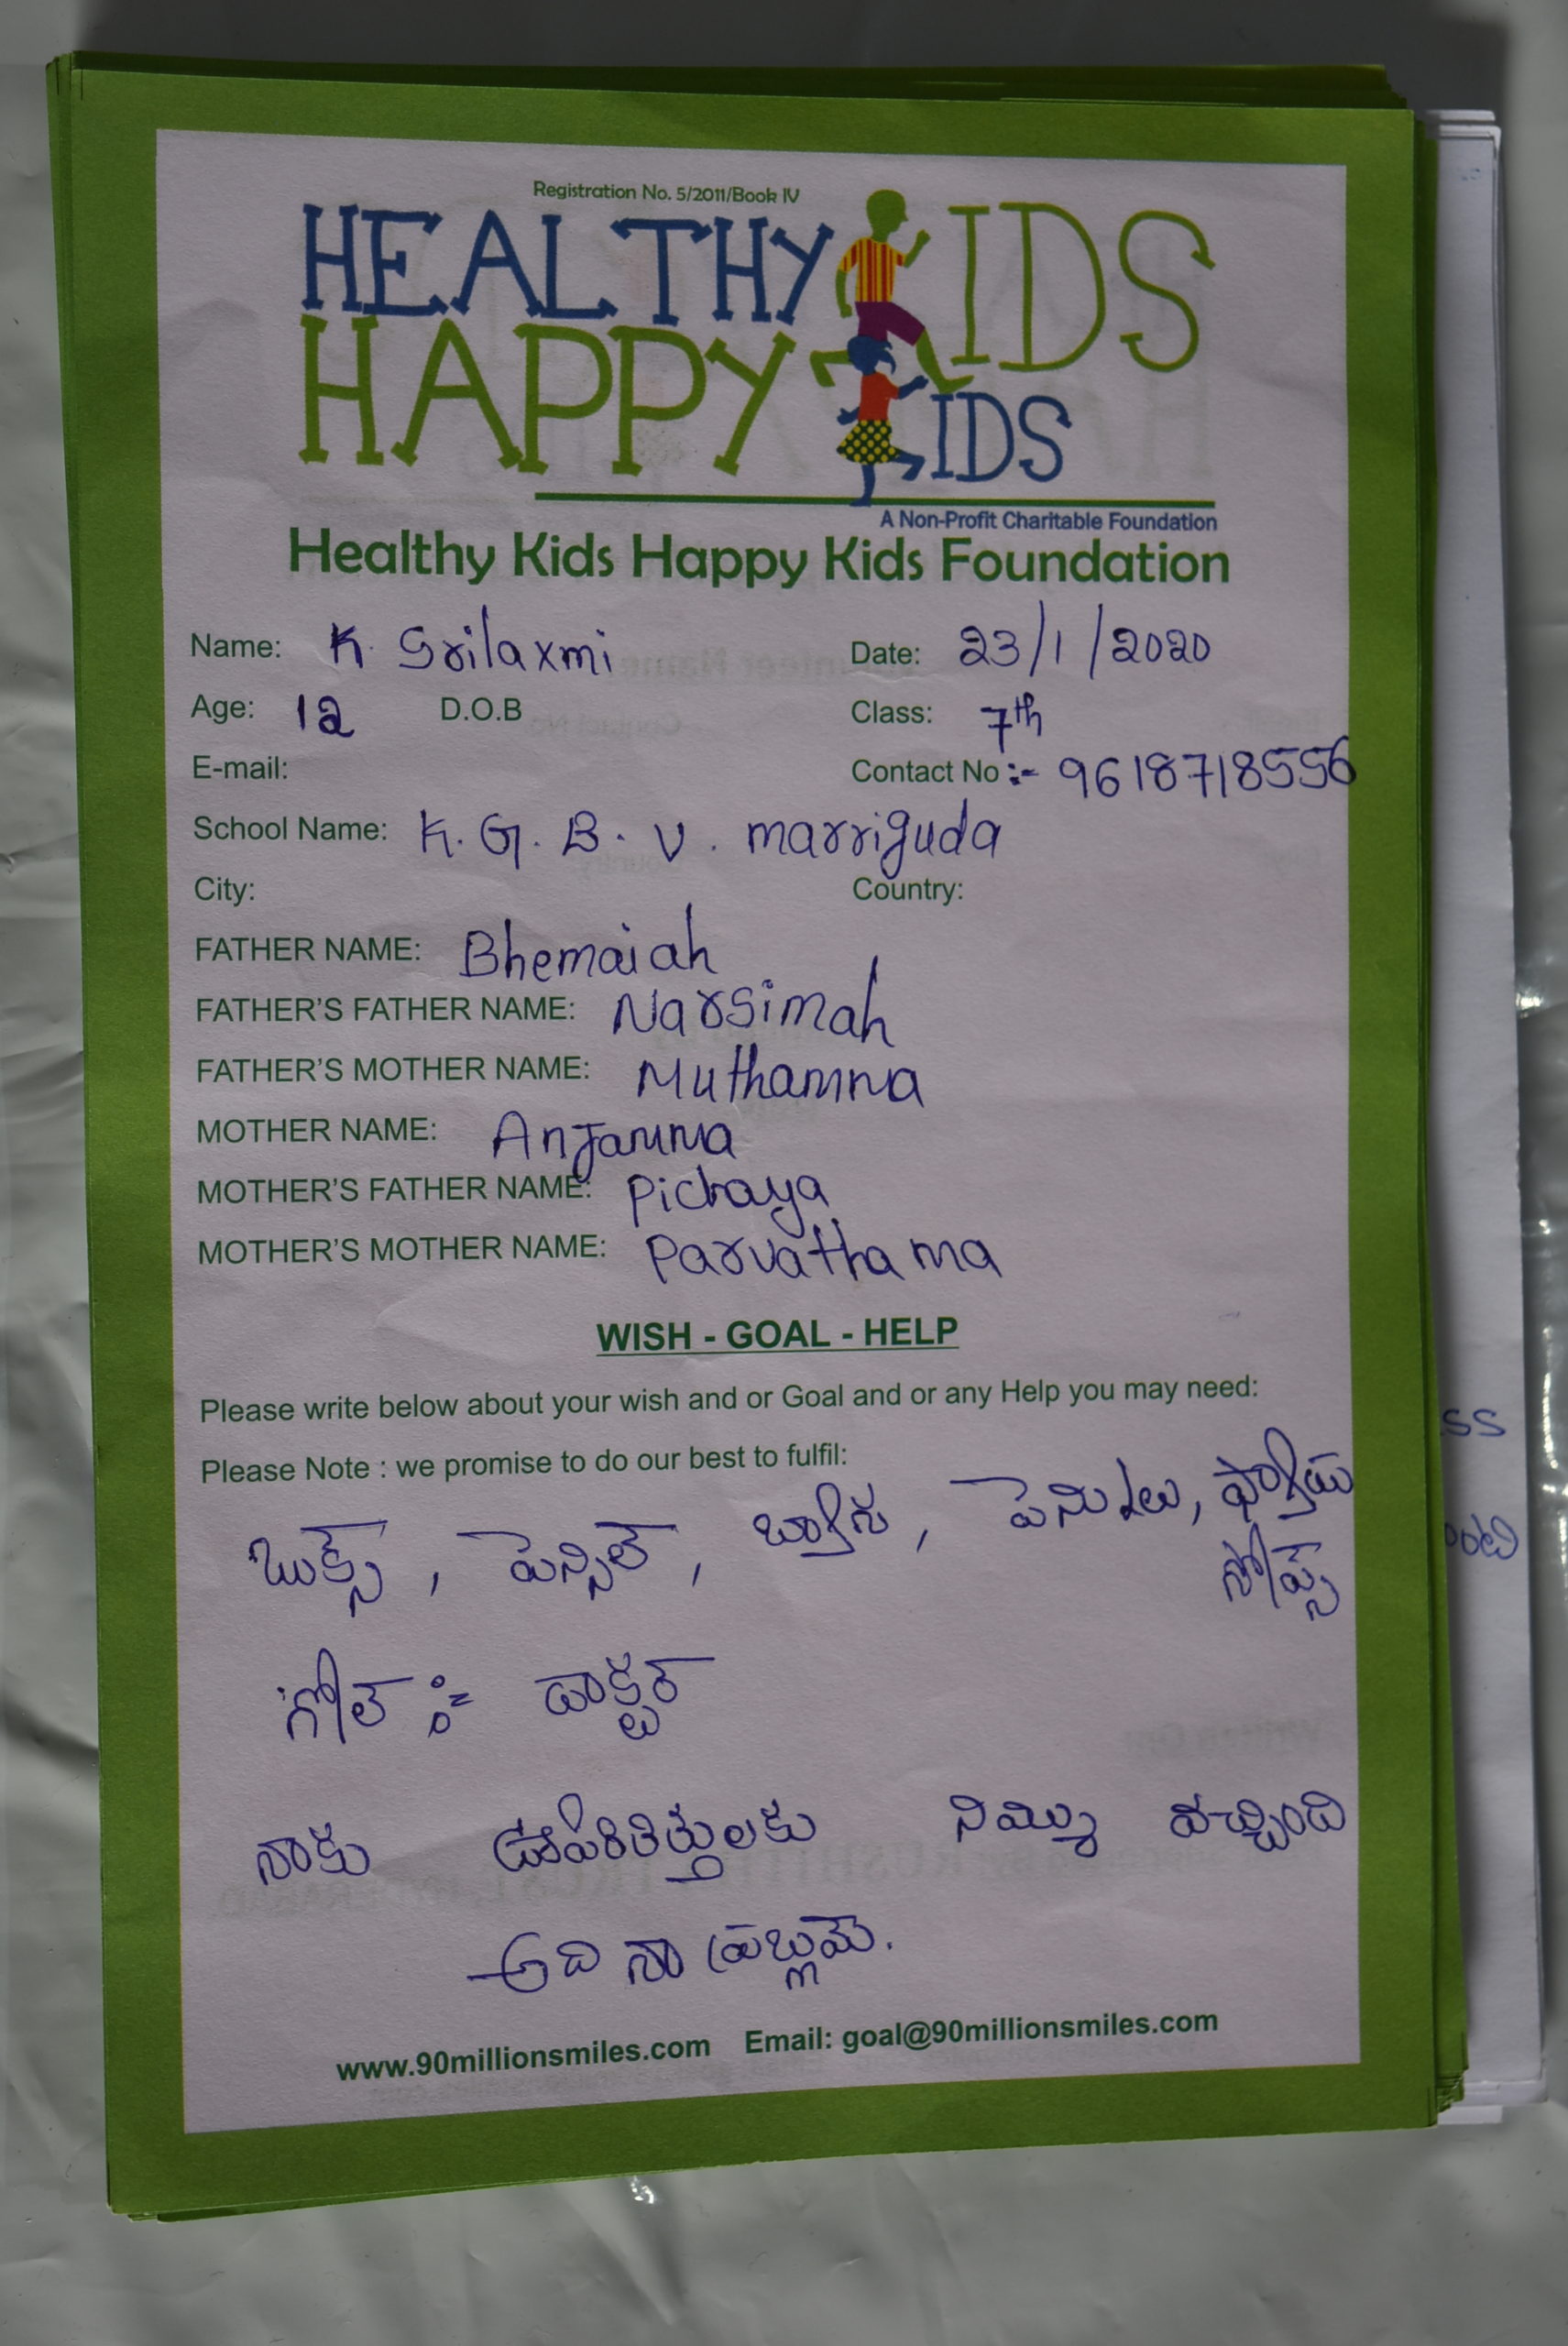 Registration No. 5/2011/Book IV
HEALTHY KIDS
HAPPY KIDS
A Non-Profit Charitable Foundation
Healthy Kids Happy Kids Foundation
Name: K. Srilaxmi Date: 23/1/2020
Age: 12 D.O.B Class: 7th
E-mail: Contact No :- 9618718556
School Name: K. G. B. V. marriguda
City: Country:
FATHER NAME: Bhemaiah
FATHER'S FATHER NAME: Narsimah
FATHER'S MOTHER NAME: Muthamma
MOTHER NAME: Anjamma
MOTHER'S FATHER NAME: Pichaya
MOTHER'S MOTHER NAME: Parvathama
WISH - GOAL - HELP
Please write below about your wish and or Goal and or any Help you may need:
Please Note : we promise to do our best to fulfil:
బుక్స్, పెన్సిల్,
సోప్స్
గోల్ :- డాక్టర్
నాకు ఊపిరితిత్తులకు నిమ్ము వచ్చింది
అది నా ప్రబ్లమ్.
www.90millionsmiles.com Email: goal@90millionsmiles.com